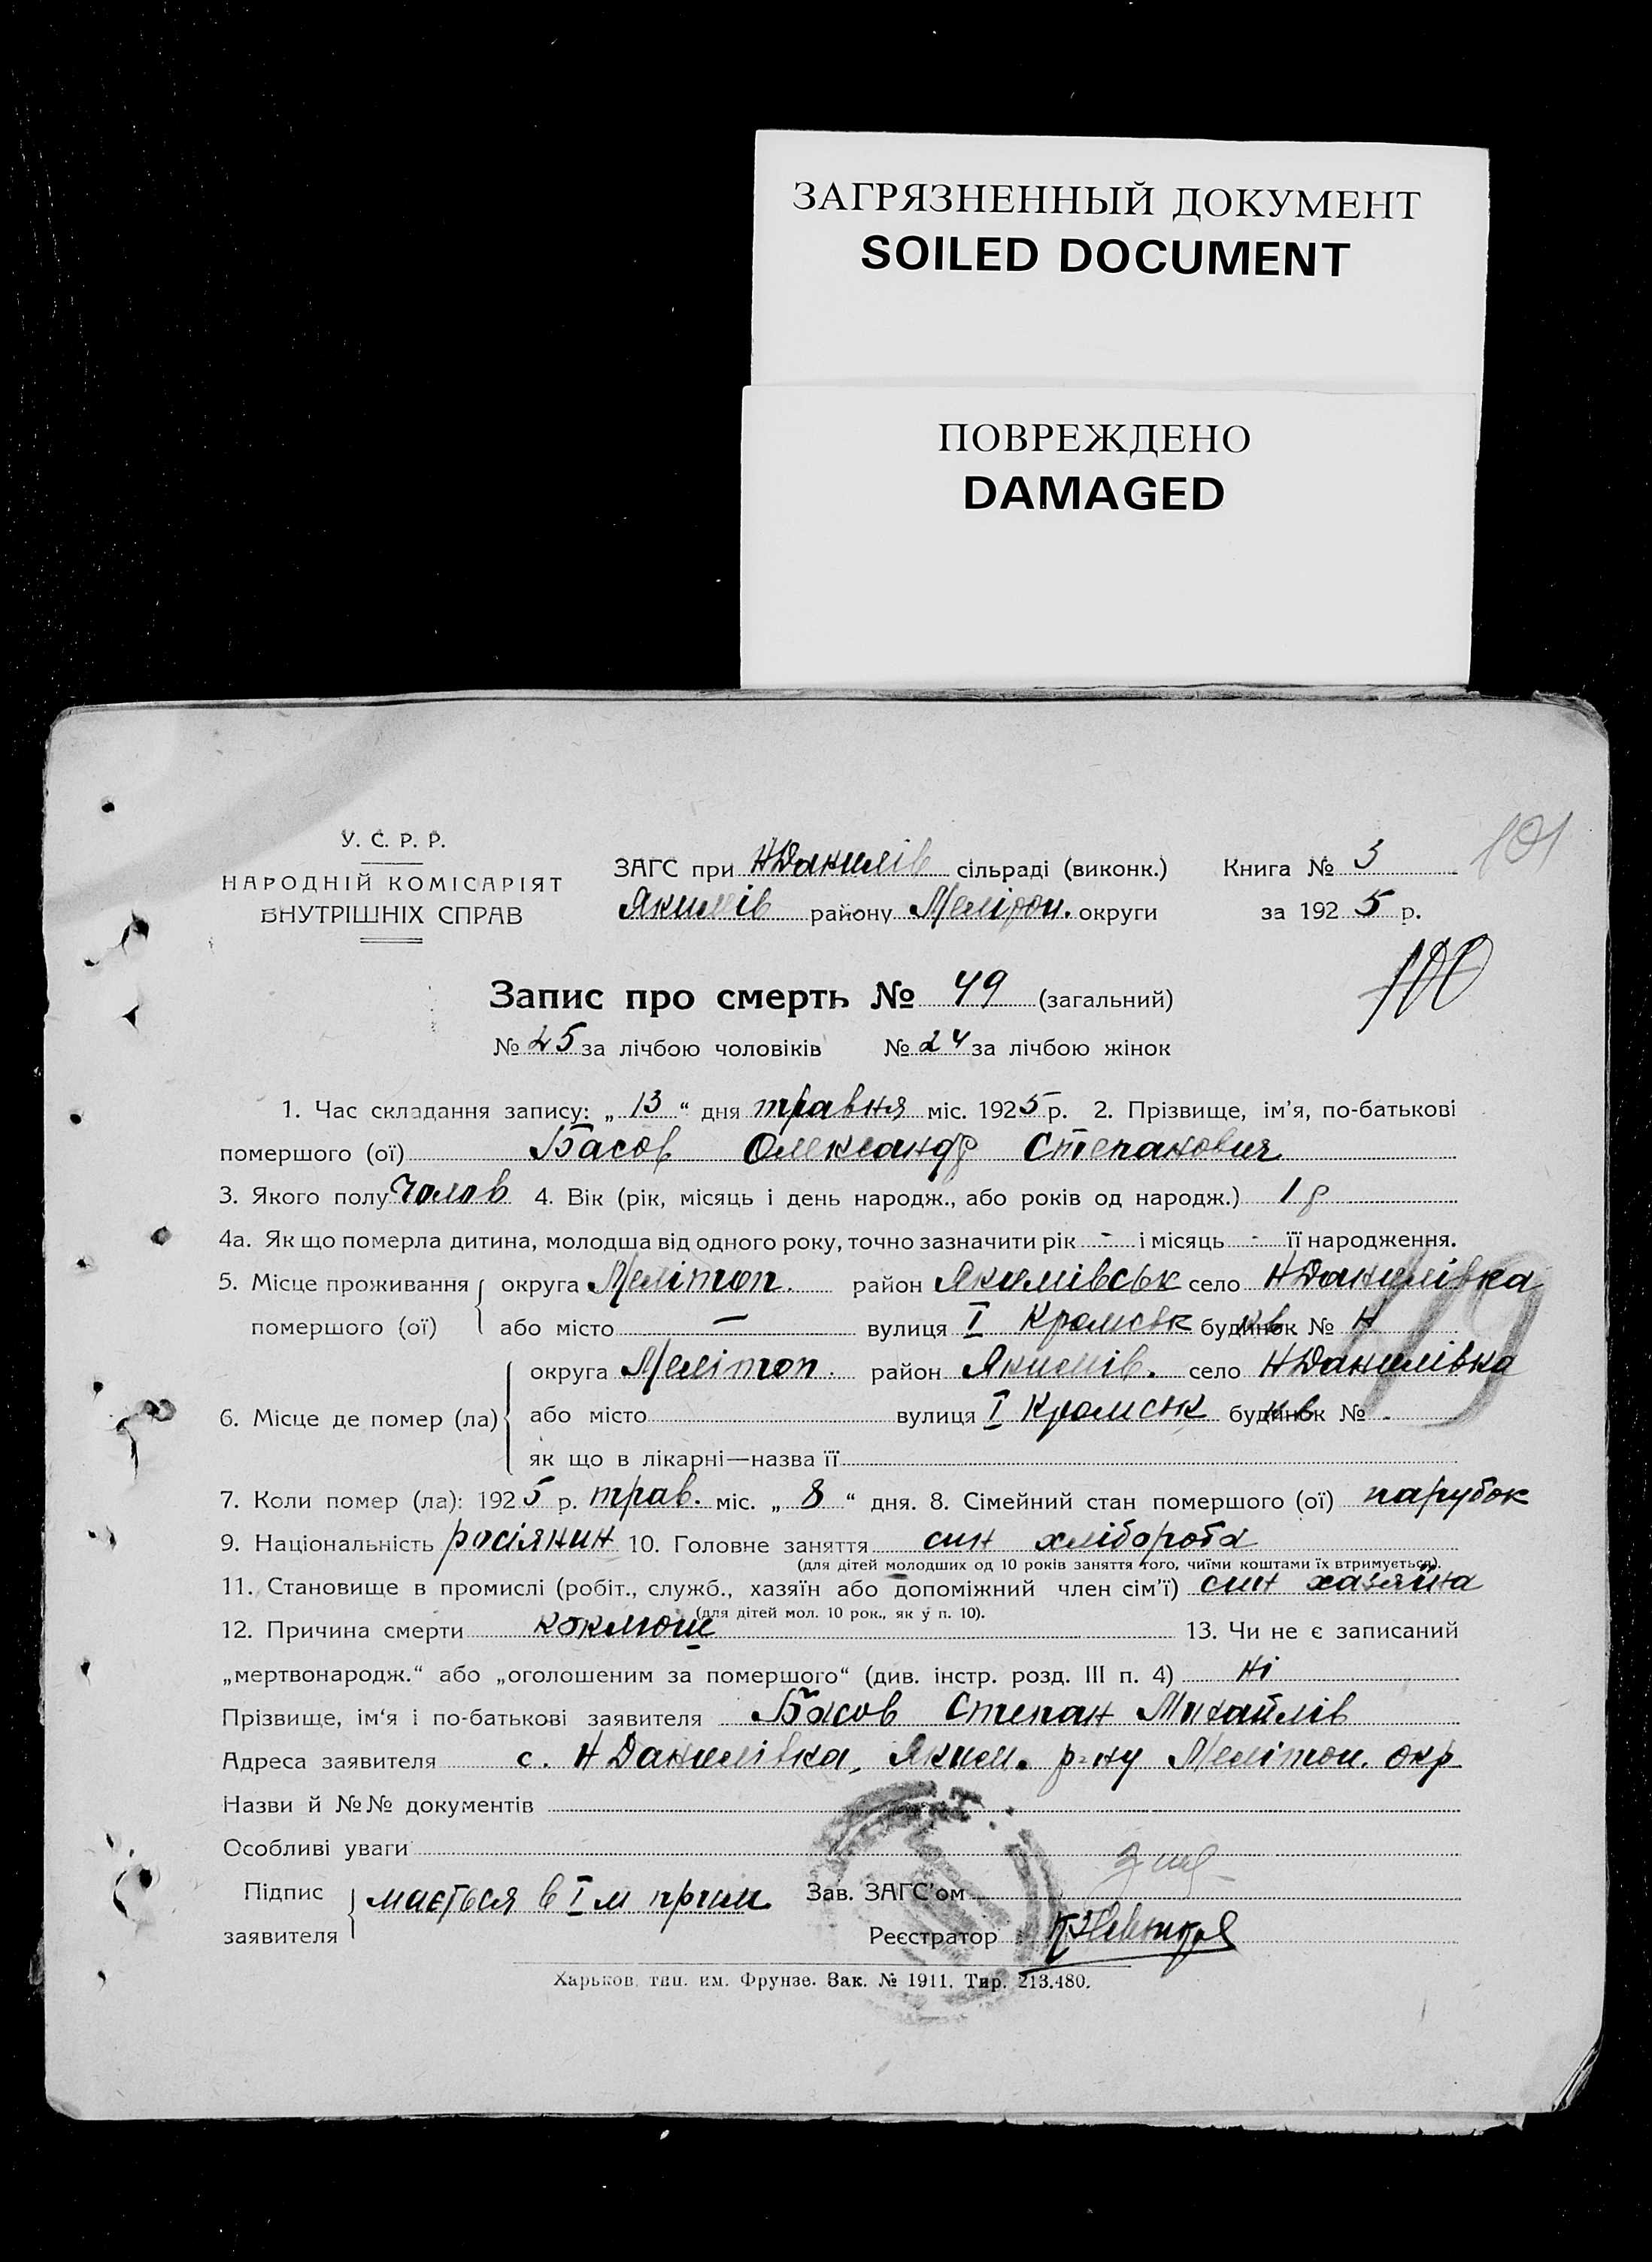 ЗАГРЯЗНЕННЫЙ ДОКУМЕНТ
SOILED DOCUMENT
ПОВРЕЖДЕНО
DAMAGED
101
У. С. Р. Р.
НАРОДНІЙ КОМІСАРІЯТ
ВНУТРІШНІХ СПРАВ
ЗАГС при НДанилів сільраді (виконк.) Книга № 3
Якимів району Меліtоп. округи за 1925 р.
100
Запис про смерть № 49 (загальний)
№ 25 за лічбою чоловіків № 24 за лічбою жінок
1. Час складання запису: „ 13 “ дня травня міс. 1925 р. 2. Прізвище, ім’я, по-батькові
помершого (ої) Басов Олександр Степанович
3. Якого полу Чолов 4. Вік (рік, місяць і день народж., або років од народж.) 1 р
4а. Як що померла дитина, молодша від одного року, точно зазначити рік - і місяць - її народження.
5. Місце проживання округа Мелітоп. район Якимівськ село НДанилівка
помершого (ої) або місто — вулиця I Кромськ будинок № Н
19
округа Мелітоп. район Якимів. село НДанилівка
6. Місце де помер (ла) або місто вулиця I Кромськ будинок №
як що в лікарні—назва її
7. Коли помер (ла): 1925 р. трав. міс. „ 8 “ дня. 8. Сімейний стан помершого (ої) парубок
9. Національність росіянин 10. Головне заняття син хлібороба
(для дітей молодших од 10 років заняття того, чиїми коштами їх втримується).
11. Становище в промислі (робіт., служб., хазяїн або допоміжний член сім’ї) син хазяїна
(для дітей мол. 10 рок., як у п. 10).
12. Причина смерти коклюш 13. Чи не є записаний
„мертвонародж.“ або „оголошеним за помершого“ (див. інстр. розд. III п. 4) ні
Прізвище, ім‘я і по-батькові заявителя Басов Степан Михайлів
Адреса заявителя с. НДанилівка, Яким. р-ну Мелітоп. окр
Назви й №№ документів
Особливі уваги
Підпис мається в I м прим Зав. ЗАГС’ом
заявителя Реєстратор
Харьков, тип. им. Фрунзе. Зак. № 1911. Тир. 213.480.